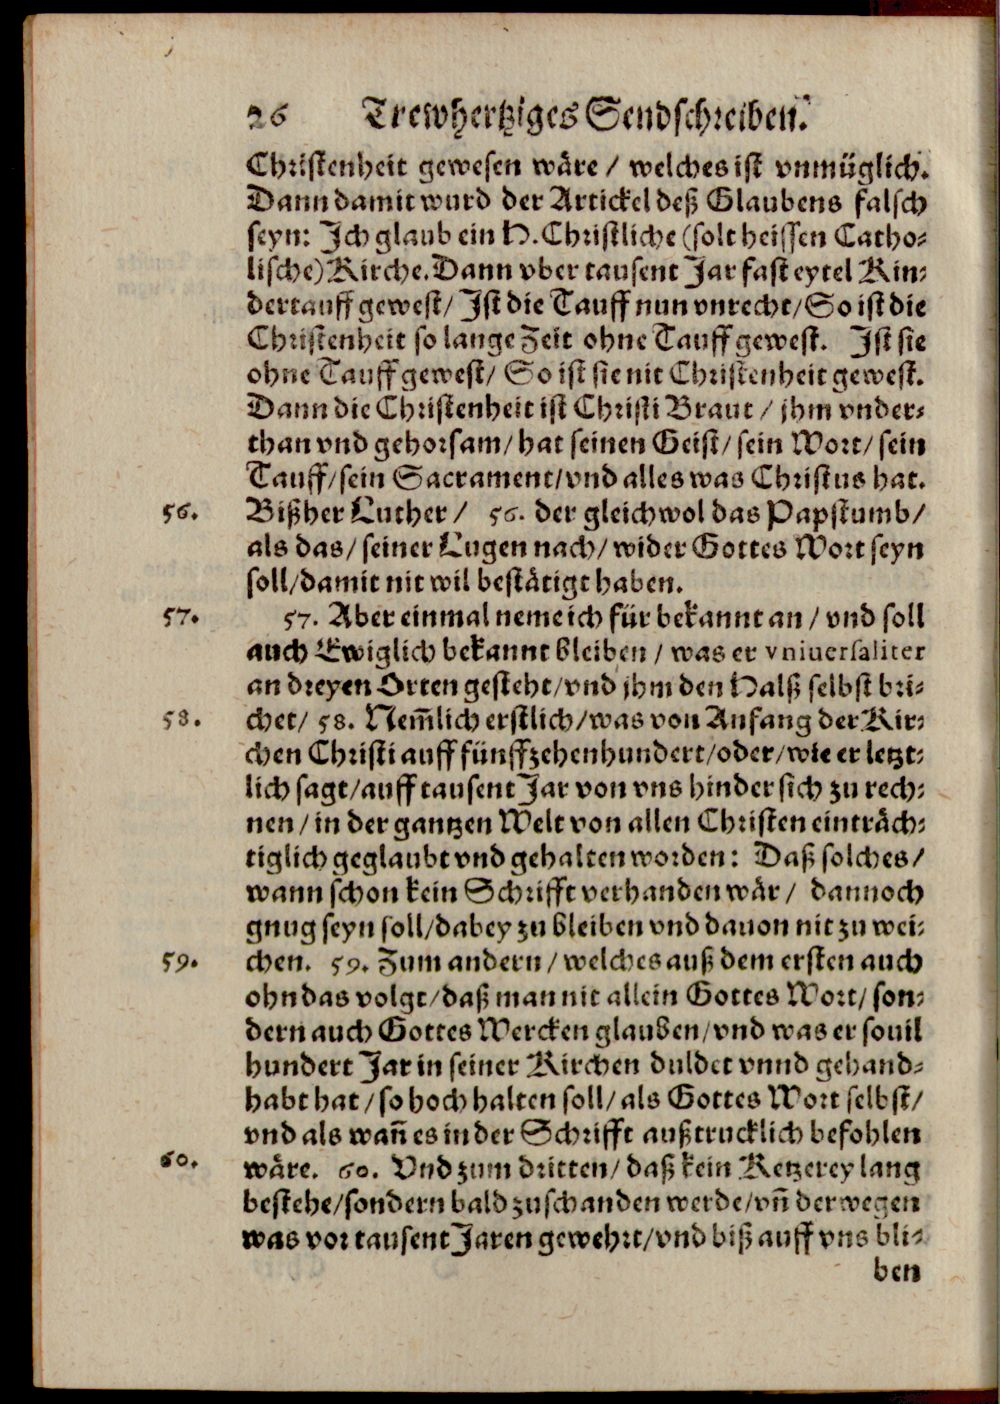 26 Trewhertziges Sendschreiben.
Christenheit gewesen wäre / welches ist vnmüglich.
Dann damit wurd der Artickel deß Glaubens falsch
seyn: Jch glaub ein H. Christliche (solt heissen Catho-
lische) Kirche. Dann vber tausent Jar fast eytel Kin-
dertauff gewest / Jst die Tauff nun vnrecht / So ist die
Christenheit so lange Zeit ohne Tauff gewest. Jst sie
ohne Tauff gewest / So ist sie nit Christenheit gewest.
Dann die Christenheit ist Christi Braut / jhm vnder-
than vnd gehorsam / hat seinen Geist / sein Wort / sein
Tauff / sein Sacrament / vnd alles was Christus hat.
56. Bißher Luther / 56. der gleichwol das Papstumb /
als das / seiner Lugen nach / wider Gottes Wort seyn
soll / damit nit wil bestätigt haben.
57. 57. Aber einmal neme ich für bekannt an / vnd soll
auch Ewiglich bekannt bleiben / was er vniuersaliter
an dreyen Orten gesteht / vnd jhm den Halß selbst bri-
58. chet / 58. Nem̃lich erstlich / was von Anfang der Kir-
chen Christi auff fünffzehenhundert / oder / wie er letzt-
lich sagt / auff tausent Jar von vns hinder sich zu rech-
nen / in der gantzen Welt von allen Christen einträch-
tiglich geglaubt vnd gehalten worden: Daß solches /
wann schon kein Schrifft verhanden wär / dannoch
gnug seyn soll / dabey zu bleiben vnd dauon nit zu wei-
59. chen. 59. Zum andern / welches auß dem ersten auch
ohn das volgt / daß man nit allein Gottes Wort / son-
dern auch Gottes Wercken glauben / vnd was er souil
hundert Jar in seiner Kirchen duldet vnnd gehand-
habt hat / so hoch halten soll / als Gottes Wort selbst /
vnd als wañ es in der Schrifft außtrucklich befohlen
60. wäre. 60. Vnd zum dritten / daß kein Ketzerey lang
bestehe / sondern bald zuschanden werde / vñ derwegen
was vor tausent Jaren gewehrt / vnd biß auff vns bli-
ben